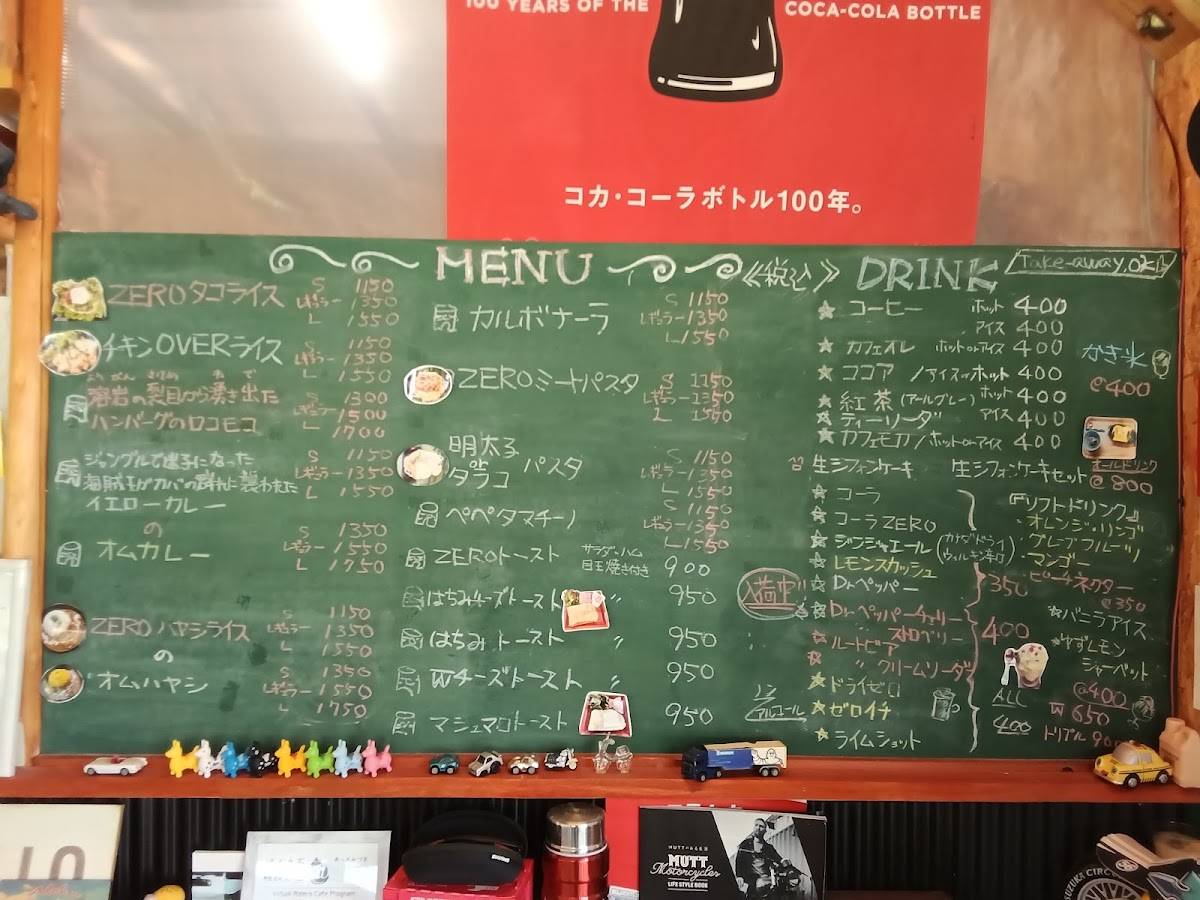 100 YEARS OF THE
COCA-COLA BOTTLE
コカ・コーラボトル100年。
MENU
《税込》
DRINK
Take-away.ok
ZEROタコライス
S 1150
レギュラー 1350
L 1550
チキンOVERライス
S 1150
レギュラー 1350
L 1550
溶岩の裂目から湧き出た
ハンバーグのロコモコ
S 1300
レギュラー 1500
L 1700
ジャングルで迷子になった
海賊王がカバの群れに襲われた
イエローカレー
S 1150
レギュラー 1350
L 1550
の
オムカレー
S 1350
レギュラー 1550
L 1750
ZEROハヤシライス
S 1150
レギュラー 1350
L 1550
の
オムハヤシ
S 1350
レギュラー 1550
L 1750
カルボナーラ
S 1150
レギュラー 1350
L 1550
ZEROミートパスタ
S 1150
レギュラー 1350
L 1550
明太子
or
タラコ
パスタ
S 1150
レギュラー 1350
L 1550
ペペタマチーノ
S 1150
レギュラー 1350
L 1550
ZEROトースト
サラダ・ハム
目玉焼き付き
900
はちみつチーズトースト 〃 950
はちみつトースト 〃 950
Wチーズトースト 950
マシュマロトースト 950
☆ コーヒー ホット 400
アイス 400
☆ カフェオレ ホットorアイス 400
☆ ココア / アイスorホット 400
☆ 紅茶 (アールグレー) ホット 400
☆ ティーソーダ アイス 400
☆ カフェモカ / ホットorアイス 400
かき氷
@400
生シフォンケーキ
生シフォンケーキセット
オールドリンク
@800
☆ コーラ
☆ コーラZERO
☆ ジンジャエール (カナダドライ/ウィルキン辛口)
☆ レモンスカッシュ
☆ Dr.ペッパー
350
入荷中
☆ Dr.ペッパーチェリー
ストロベリー
☆ ルートビア
☆ 〃 クリームソーダ
400
ノンアルコール
☆ ドライゼロ
☆ ゼロイチ
☆ ライムショット
ALL
400
『ソフトドリンク』
オレンジ・リンゴ
グレープフルーツ
マンゴー
ピーチネクター
@350
☆バニラアイス
☆ゆずレモン
シャーベット
@400
W 650
トリプル 900
MUTT
Motorcycles
LIFE STYLE BOOK